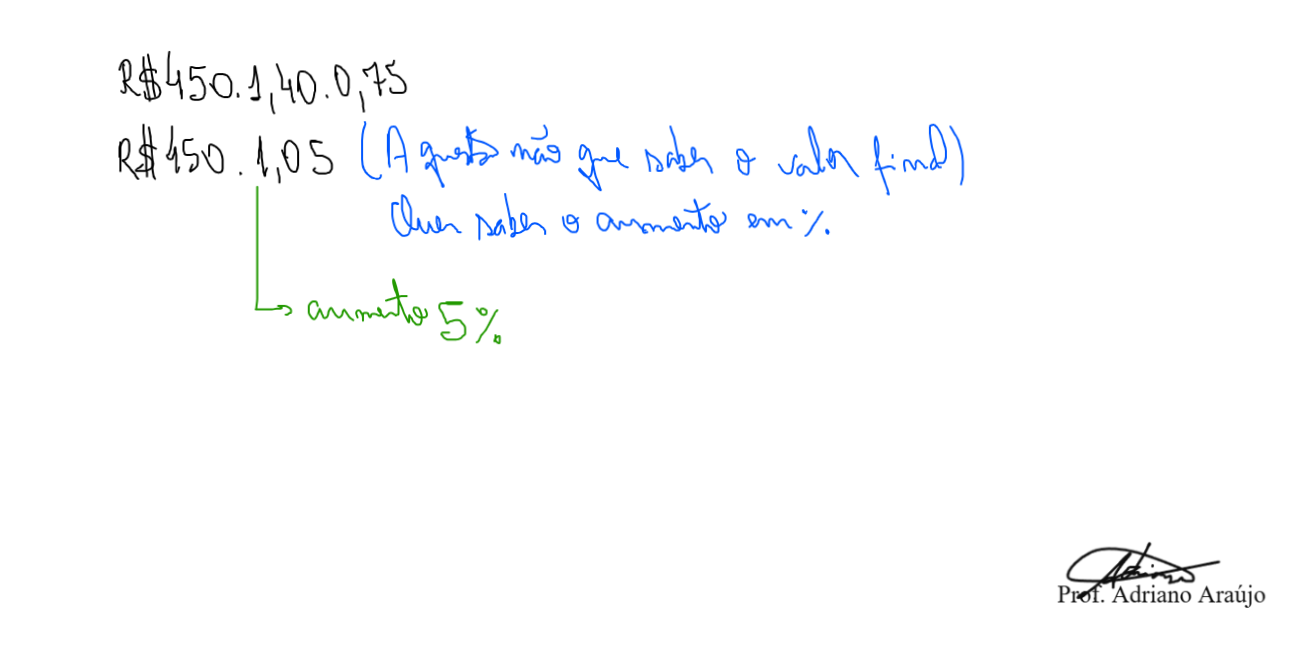 R$450.1,40.0,75
R$450.1,05 (A questão não que saber o valor final)
Quer saber o aumento em %.
aumento 5%
Prof. Adriano Araújo